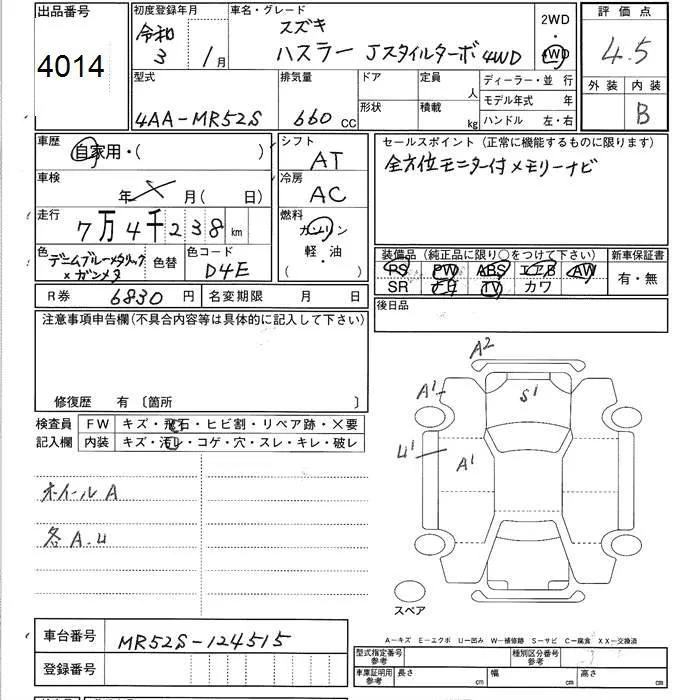 出品番号
4014
初度登録年月
令和
3 1月
車名・グレード
スズキ
ハスラー Jスタイルターボ 4WD
2WD
・
4WD
評価点
4.5
外装 内装
B
型式
4AA-MR52S
排気量
660 cc
ドア
形状
定員
人
積載
kg
ディーラー・並行
モデル年式 年
ハンドル 左・右
車歴
自家用・( )
車検
年 × 月( 日)
走行
7万4千238 km
色
デニムブルーメタリック
×ガンメタ
色替
色コード
D4E
シフト
AT
冷房
AC
燃料
ガソリン
軽・油
セールスポイント (正常に機能するものに限ります)
全方位モニター付メモリーナビ
装備品 (純正品に限り○をつけて下さい)
新車保証書
PS PW ABS エアB AW
SR ナビ TV カワ
有・無
R券 6830 円
名変期限 月 日
後日品
注意事項申告欄(不具合内容等は具体的に記入して下さい)
修復歴 有 〔箇所 〕
検査員
記入欄
FW キズ・飛石・ヒビ割・リペア跡・×要
内装 キズ・汚レ・コゲ・穴・スレ・キレ・破レ
ホイールA
各A.U
A2
A1
S1
U1
A1
スペア
A-キズ E-エクボ U-凹み W-補修跡 S-サビ C-腐食 XX-交換済
車台番号
MR52S-124515
登録番号
型式指定番号
参考
種別区分番号
参考
車庫証明用
参考
長さ cm
幅 cm
高さ cm